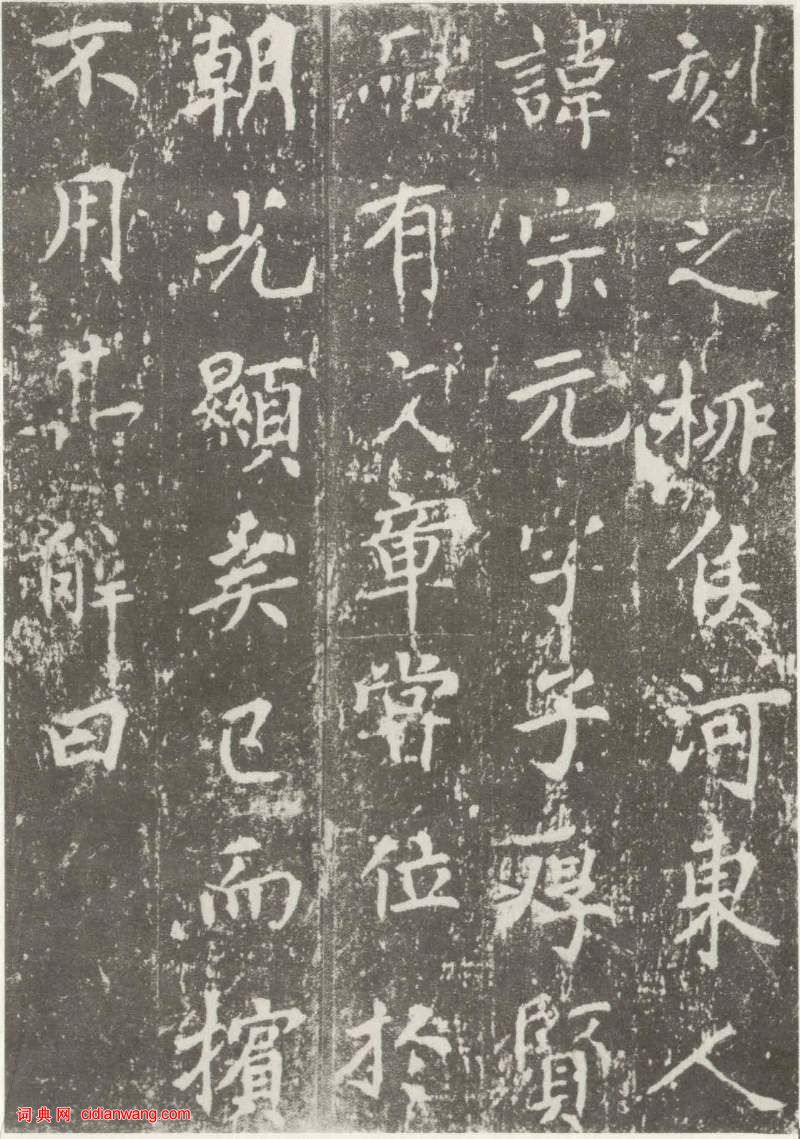 刻之柳侯河東人
諱宗元字子厚賢
而有文章嘗位於
朝光顯矣已而擯
不用其辭曰
词典网 cidianwang.com